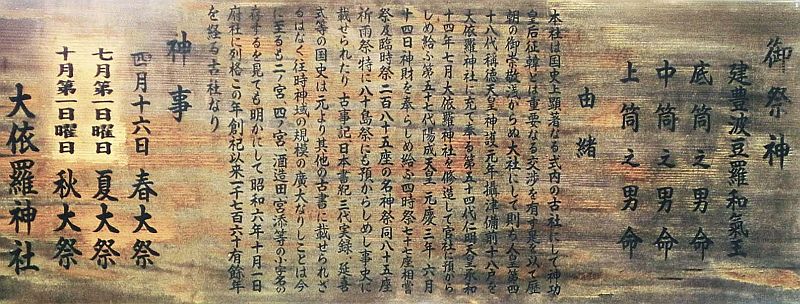 御祭神
建豊波豆羅和氣王
底筒之男命
中筒之男命
上筒之男命
由緒
本社は国史上顕著なる式内の古社にして神功
皇后征韓とは重要なる交渉を有す是を以て歴
朝の御崇敬浅からぬ大社にして則ち人皇第四
十八代称徳天皇神護元年摂津備前十八戸を
大依羅神社に充て奉る第五十四代仁明天皇承和
十四年七月大依羅神社を修造して官社に預から
しめ給ふ第五十七代陽成天皇元慶三年六月
十四日神財を奉らしめ給ふ四時祭七十一座相嘗
祭及臨時祭二百八十五座の名神祭同八十五座
祈雨祭特に八十島祭にも預からしめし事史に
載せられたり古事記日本書紀三代実録延喜
式等の国史は元より其他の古書に載せられざ
るはなく往時神域の規模の広大なりしことは今
に至るも二ノ宮、四ノ宮、酒造田宮添等の小字名の
存するを見ても明かにして昭和六年十月一日
府社に列格この年創祀以来一千七百六十有余年
を経る古社なり
神事
四月十六日 春大祭
七月第一日曜日 夏大祭
十月第一日曜日 秋大祭
大依羅神社